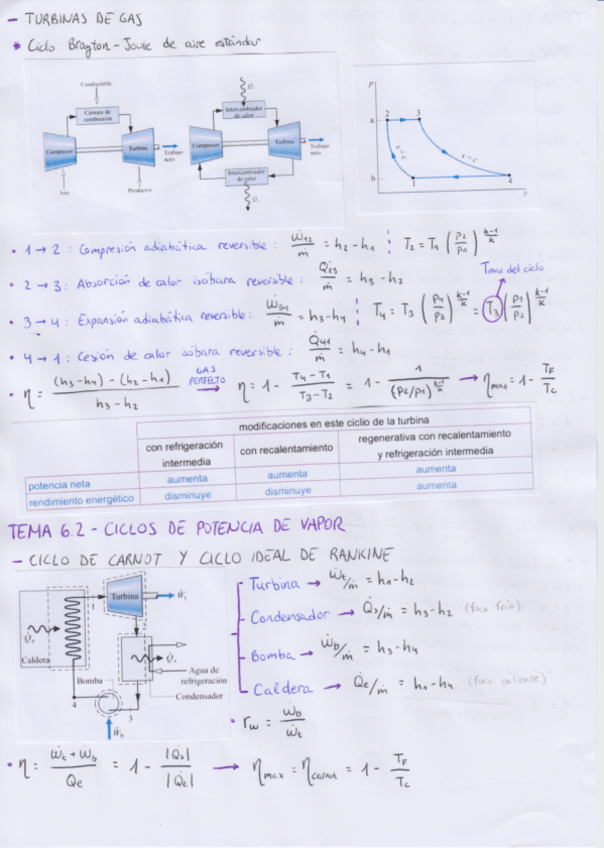 - TURBINAS DE GAS
* Ciclo Brayton - Joule de aire estándar
Combustible
Cámara de combustión
Compresor
Turbina
Trabajo neto
Aire
Productos
Intercambiador de calor
Compresor
Turbina
Trabajo neto
Intercambiador de calor
p
a
2
3
s = c
s = c
b
1
4
v
• 1 → 2 : Compresión adiabática reversible : Ẇ12/ṁ = h2 - h1 ¦ T2 = T1 (p2/p1)^(k-1/k)
• 2 → 3 : Absorción de calor isóbara reversible : Q̇23/ṁ = h3 - h2
Tmax del ciclo
• 3 → 4 : Expansión adiabática reversible : Ẇ34/ṁ = h3 - h4 ¦ T4 = T3 (p4/p3)^(k-1/k) = T3 (p1/p2)^(k-1/k)
• 4 → 1 : Cesión de calor isóbara reversible : Q̇41/ṁ = h4 - h1
• η = (h3-h4) - (h2-h1) / h3 - h2 GAS PERFECTO → η = 1 - T4 - T1 / T3 - T2 = 1 - 1 / (p2/p1)^(k-1/k) → ηmax = 1 - TF/TC
modificaciones en este ciclo de la turbina
con refrigeración intermedia
con recalentamiento
regenerativa con recalentamiento y refrigeración intermedia
potencia neta aumenta aumenta aumenta
rendimiento energético disminuye disminuye aumenta
TEMA 6.2 - CICLOS DE POTENCIA DE VAPOR
- CICLO DE CARNOT Y CICLO IDEAL DE RANKINE
Turbina
1
2
Caldera
Bomba
Agua de refrigeración
Condensador
4
3
Turbina → Ẇt/ṁ = h1 - h2
Condensador → Q̇s/ṁ = h3 - h2 (foco frío)
Bomba → Ẇb/ṁ = h3 - h4
Caldera → Q̇e/ṁ = h1 - h4 (foco caliente)
• rw = Ẇb/Ẇt
• η = Ẇt + Ẇb / Q̇e = 1 - |Q̇s| / |Q̇e| → ηmax = ηcarnot = 1 - TF/TC